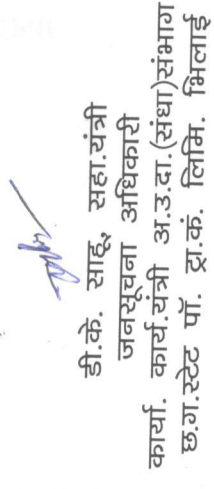 डी.के. साहू, सहा.यंत्री
जनसूचना अधिकारी
कार्या. कार्य.यंत्री अ.उ.दा.(संधा)संभाग
छ.ग.स्टेट पॉ. ट्रा.कं. लिमि. भिलाई